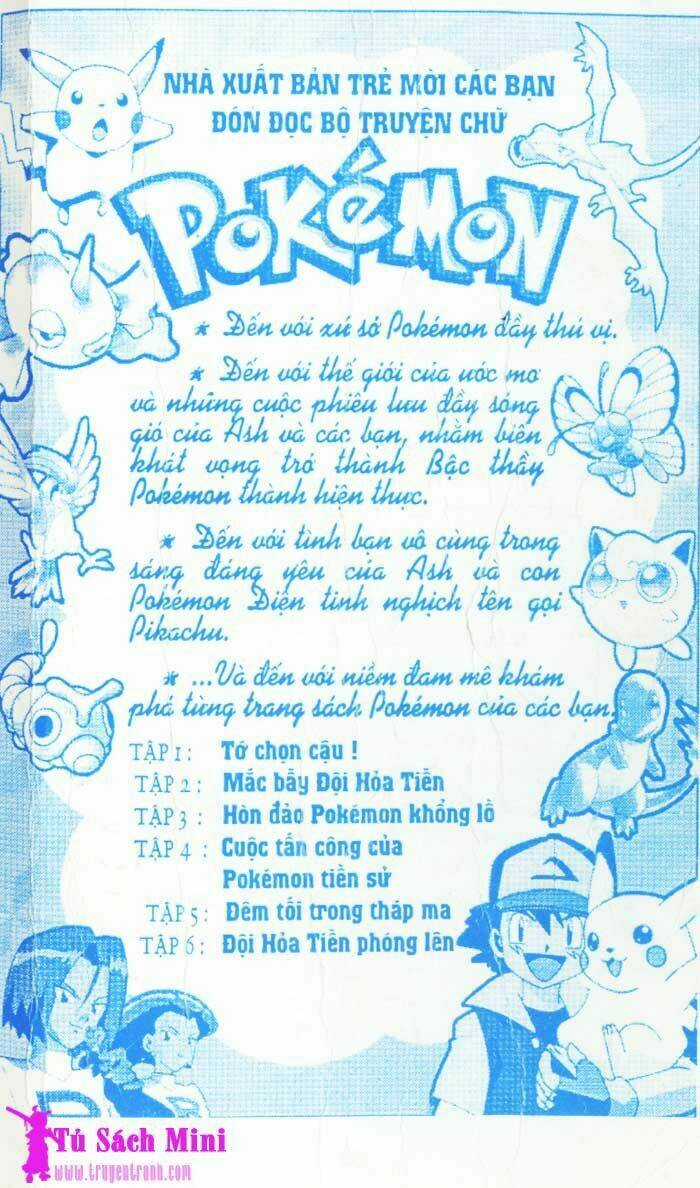 NHÀ XUẤT BẢN TRẺ MỜI CÁC BẠN
ĐÓN ĐỌC BỘ TRUYỆN CHỮ
POKéMON
★ Đến với xứ sở Pokémon đầy thú vị.
★ Đến với thế giới của ước mơ
và những cuộc phiêu lưu đầy sóng
gió của Ash và các bạn, nhằm biến
khát vọng trở thành Bậc thầy
Pokémon thành hiện thực.
★ Đến với tình bạn vô cùng trong
sáng đáng yêu của Ash và con
Pokémon Điện tinh nghịch tên gọi
Pikachu.
★ ...Và đến với niềm đam mê khám
phá từng trang sách Pokémon của các bạn.
TẬP 1 : Tớ chọn cậu !
TẬP 2 : Mắc bẫy Đội Hỏa Tiễn
TẬP 3 : Hòn đảo Pokémon khổng lồ
TẬP 4 : Cuộc tấn công của
Pokémon tiền sử
TẬP 5 : Đêm tối trong tháp ma
TẬP 6 : Đội Hỏa Tiễn phóng lên
Tủ Sách Mini
www.truyentranh.com